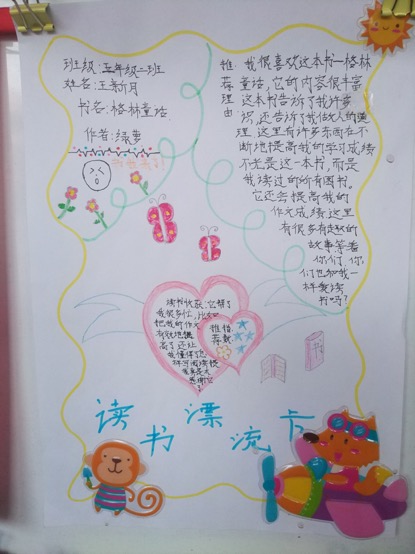 班级:五年级一班
姓名:王新月
书名:格林童话
作者:绿萝
推荐理由
我很喜欢这本书—格林
童话,它的内容很丰富
这本书告诉了我许多知
识,还告诉了我做人的道
理 这里有许多东西在不
断地提高我的学习成绩
不光是这一本书,而是
我读过的所有图书。
它还会提高我的
作文成绩 这里
有很多有趣的
故事等着
你们,你
们也和我一
样爱读
书吗?
读书收获:它帮了
我很多忙,比如
把我的作文
有效地提
高了 还让
我懂得了
推荐指数
读书漂流卡